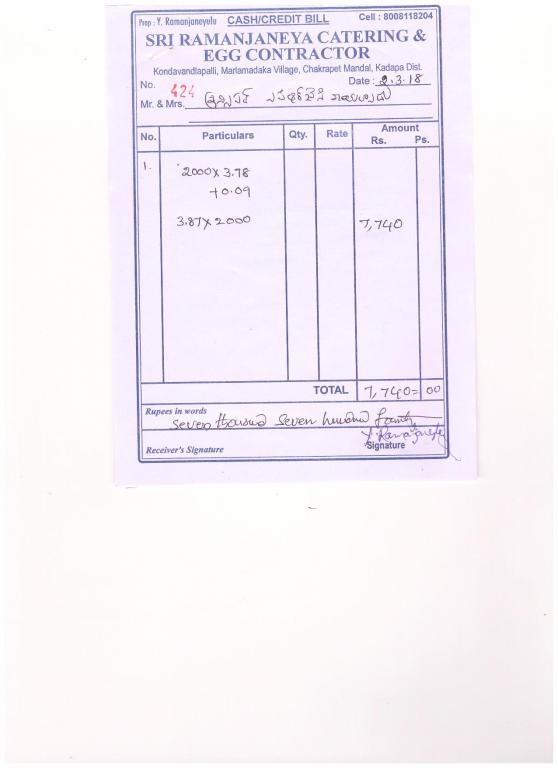 Prop : Y. Ramanjaneyulu CASH/CREDIT BILL Cell : 8008118204
SRI RAMANJANEYA CATERING &
EGG CONTRACTOR
Kondavandlapalli, Marlamadaka Village, Chakrapet Mandal, Kadapa Dist.
No. 424 Date : 2.3.18
Mr. & Mrs.
No. Particulars Qty. Rate Amount
Rs. Ps.
1. 2000 x 3.78
+0.09
3.87 x 2000 7,740
TOTAL 7,740=00
Rupees in words
seven thousand seven hundred
Receiver's Signature Signature